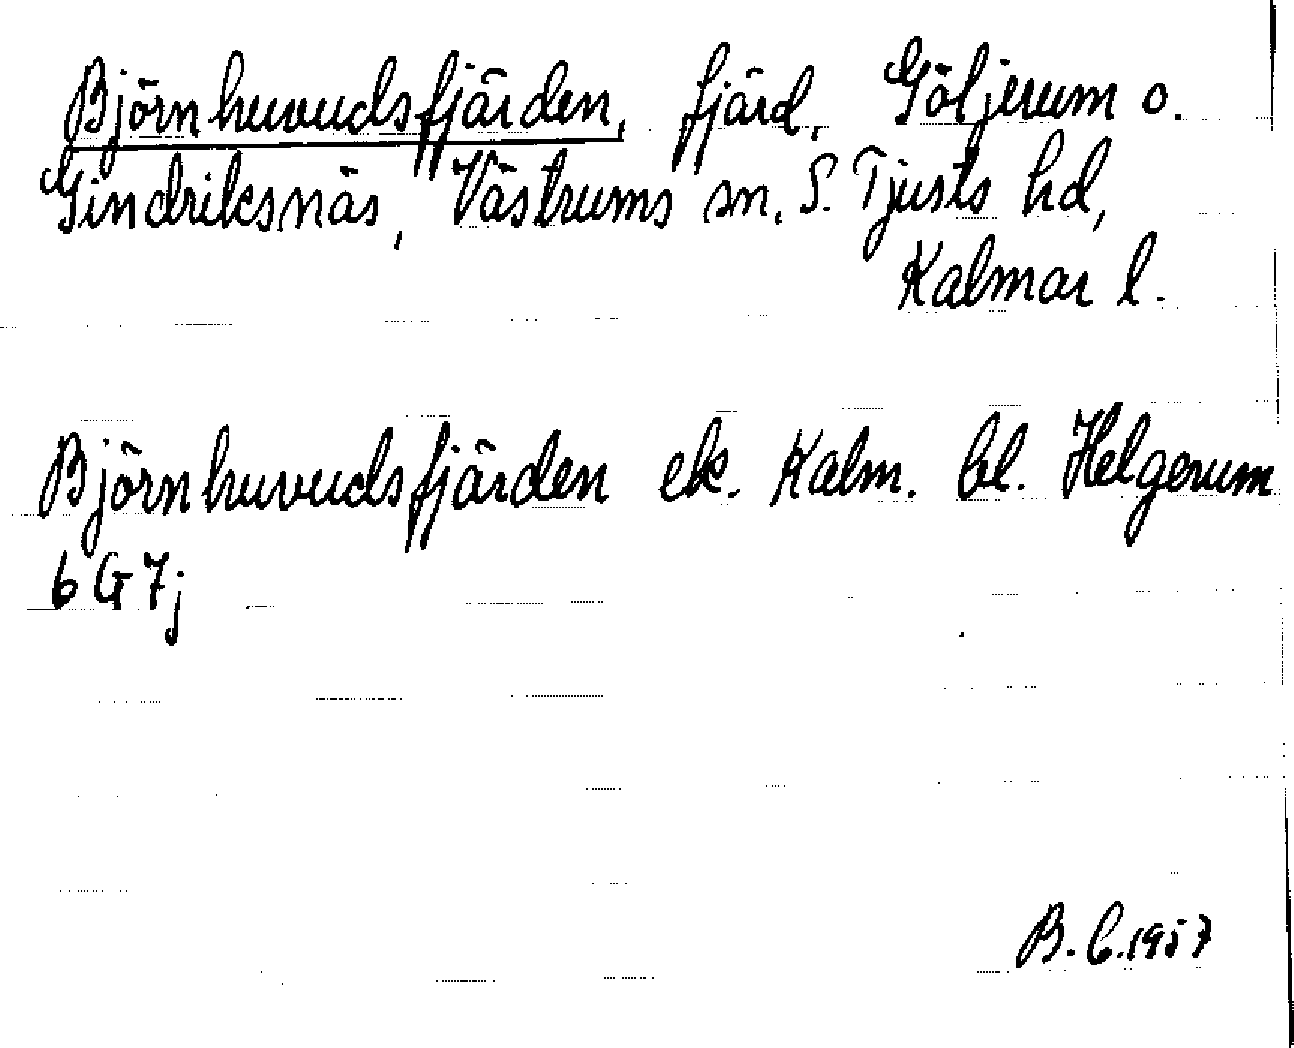 Björnhuvudsfjärden, fjärd, Göljerum o.
Gindriksnäs, Västrums sn, S. Tjusts hd,
Kalmar l.
Björnhuvudsfjärden ek. Kalm. bl. Helgerum
6 G 7j
B. C. 1957